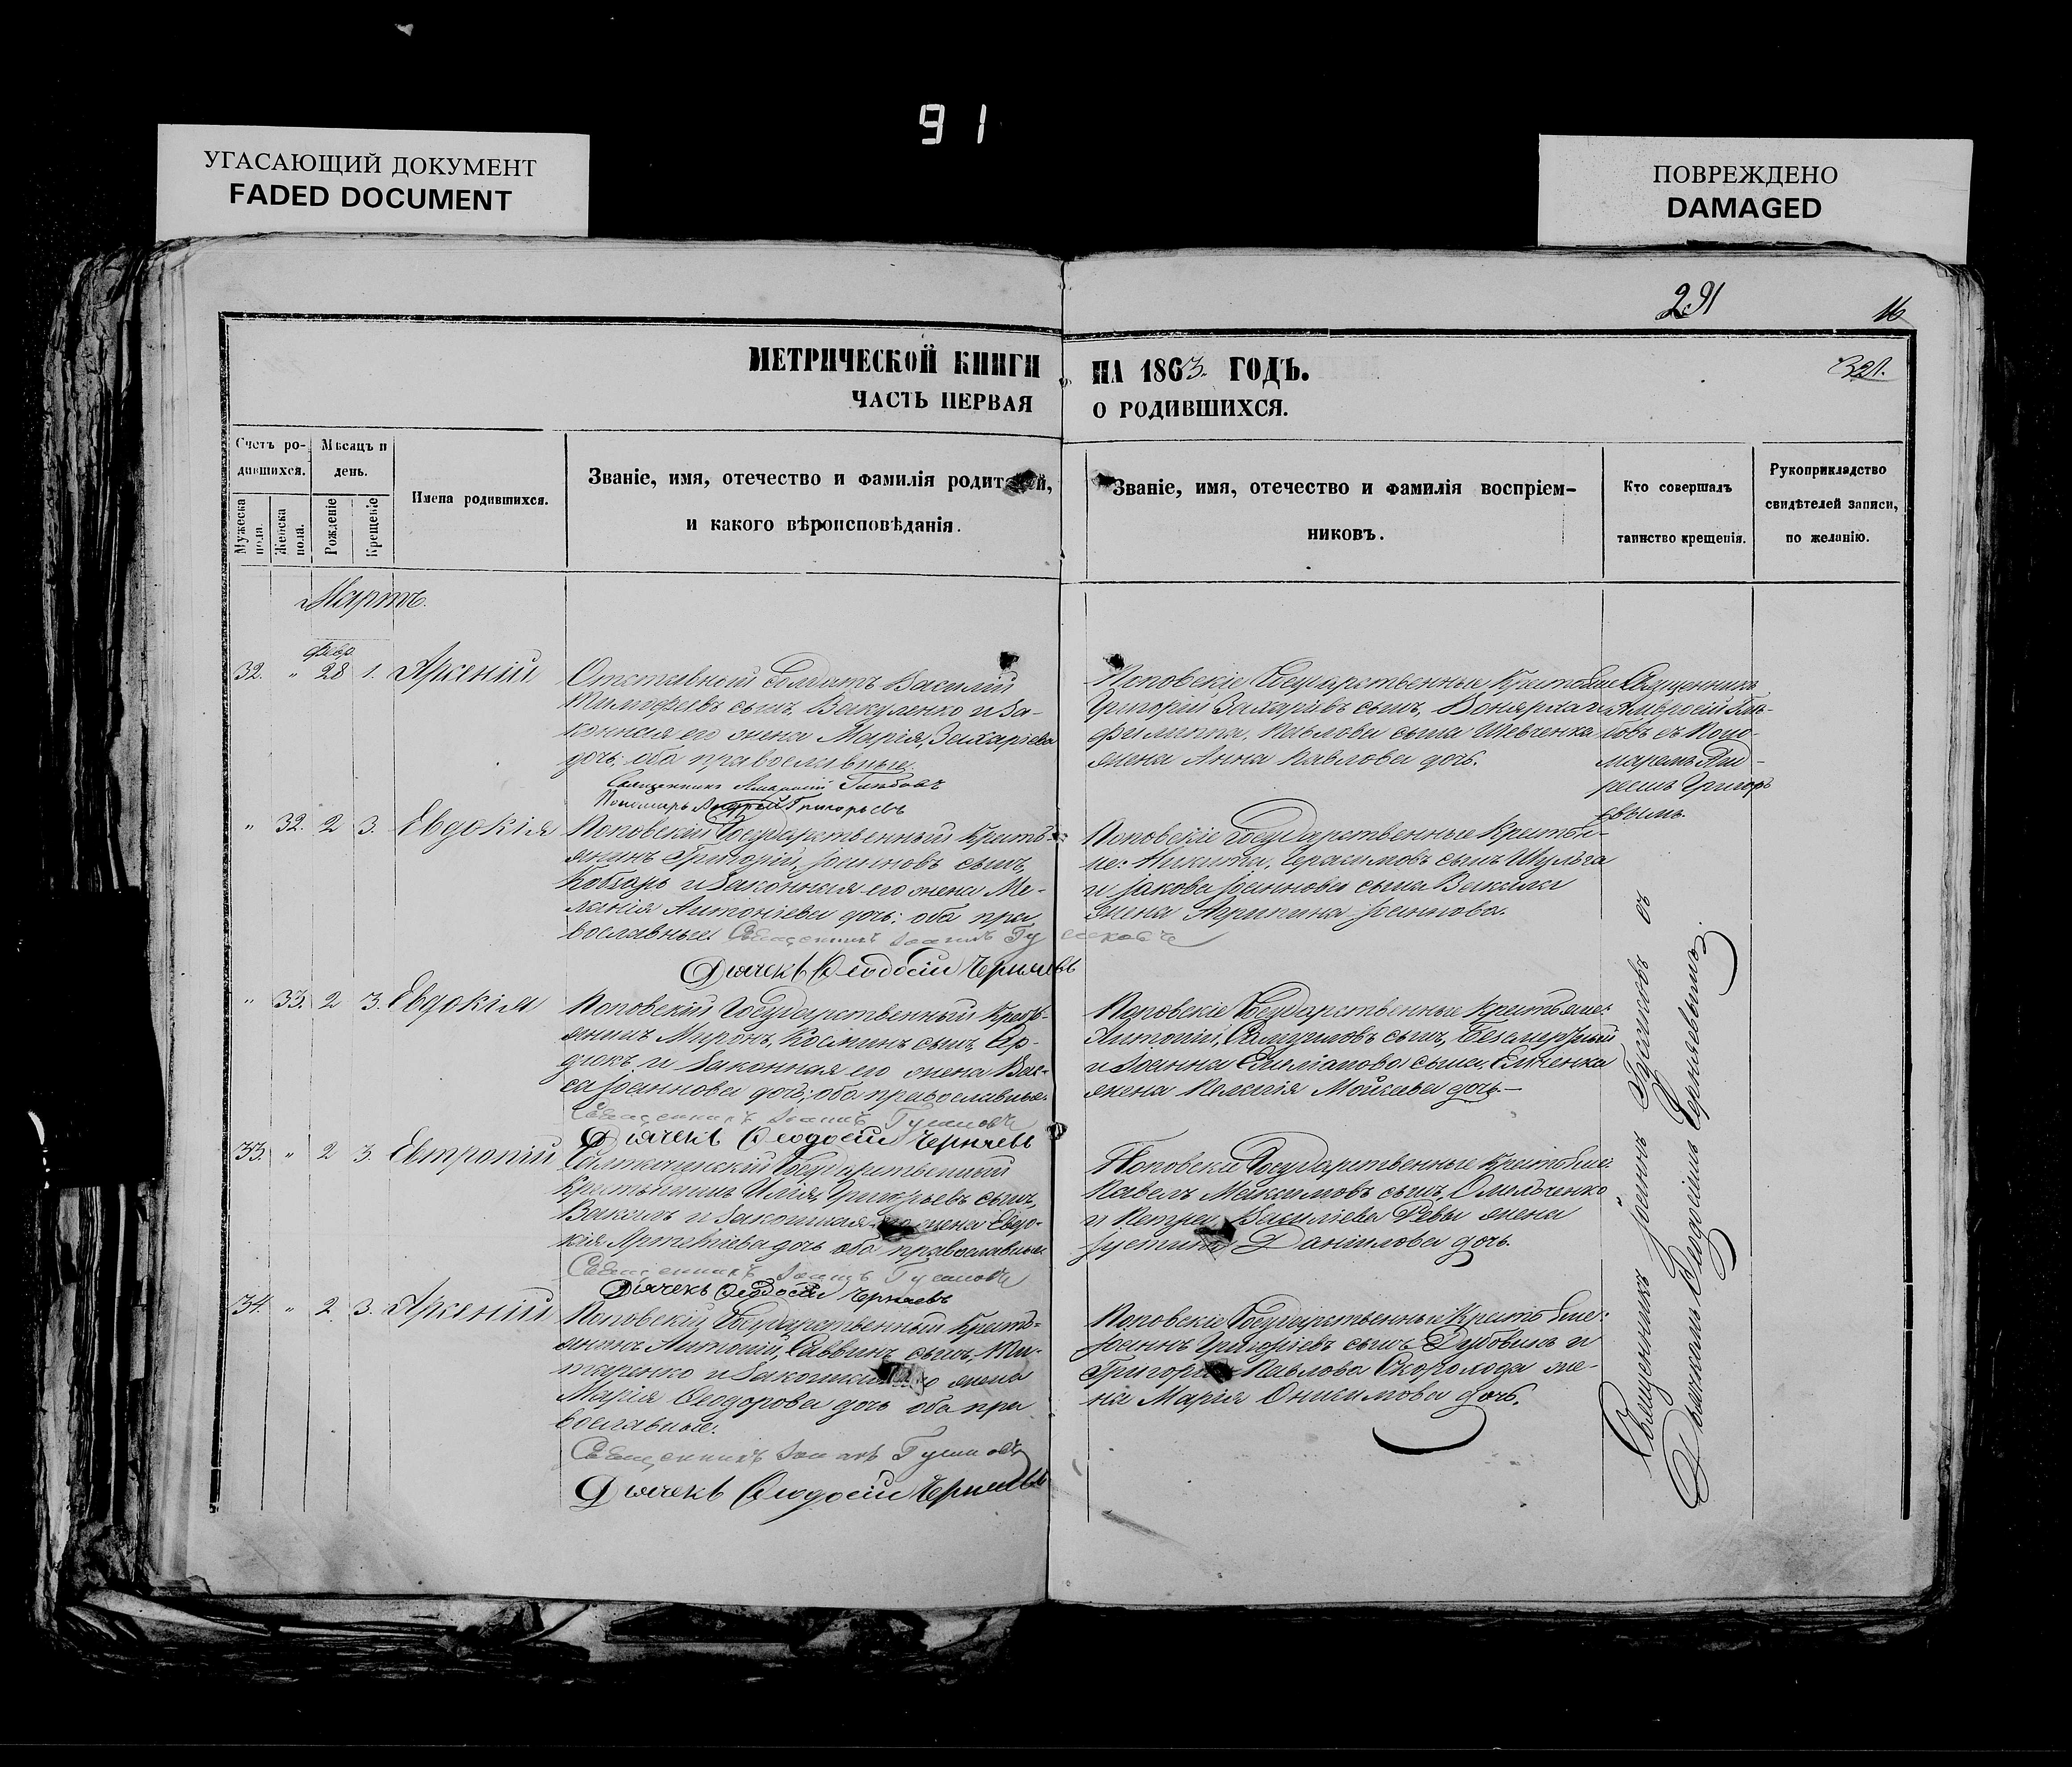 91
УГАСАЮЩИЙ ДОКУМЕНТ
FADED DOCUMENT
ПОВРЕЖДЕНО
DAMAGED
291
16
321.
МЕТРИЧЕСКОЙ КНИГИ НА 1863 ГОДЪ.
ЧАСТЬ ПЕРВАЯ О РОДИВШИХСЯ.
Счетъ ро-
дившихся.
Мужеска пола.
Женска пола.
Мѣсяцъ и
день.
Рожденіе
Крещеніе
Имена родившихся.
Званіе, имя, отечество и фамилія родит й,
и какого вѣроисповѣданія.
Званіе, имя, отечество и фамилія воспріем-
никовъ.
Кто совершалъ
таинство крещенія.
Рукоприкладство
свидѣтелей записи,
по желанію.
Мартъ.
Февр.
32. " 28 1. Арсеній
Отставной Солдатъ Василій
Тимофеевъ сынъ, Вакуленко и за-
конная его жена Марія, Захаріева
дочь, оба православные.
Священникъ Амвросій
Пономарь Андрей Григорьевъ
Поповскіе Государственные Крестьяне
Григорій Захаріевъ сынъ,
Филиппа, Павлова сына Шевченка
жена Анна Павлова дочь.
Священникъ
Амвросій
съ Поно-
маремъ Анд-
реемъ Григорь-
евымъ.
" 32. 2 3. Евдокія
Поповскій Государственный Кресть-
янинъ Григорій, Іоанновъ сынъ,
Кобзарь и законная его жена Ме-
ланія Антоніева дочь: оба пра
вославные. Священникъ Іоаннъ
Дьячекъ Ѳеодосій Черняевъ
Поповскіе Государственные Крестья-
не: Никита, Герасимовъ сынъ Шульга
и Іакова Іоаннова сына Вакала
жена Агрипина Іоаннова.
" 33. 2 3. Евдокія
Поповскій Государственный Кресть-
янинъ Миронъ, Косминъ сынъ, Сер-
дюкъ и законная его жена Вас-
са Іоаннова дочь; оба православные.
Священникъ Іоаннъ
Дьячекъ Ѳеодосій Черняевъ
Поповскіе Государственные Крестьяне:
Антоній, Самуиловъ сынъ,
и Іоанна сына,
жена Пелагія Моисеева дочь.—
33. " 2 3. Евтропій
Государственный
Крестьянинъ Илія, Григорьевъ сынъ,
Вакалъ и законная его жена Евдо-
кія дочь оба православные
Священникъ Іоаннъ
Дьячекъ Ѳеодосій Черняевъ
Поповскіе Государственные Крестьяне:
Павелъ Максимовъ сынъ, Омельченко
и Петра Василіева Ревы жена
Іустина Даніилова дочь.
34. " 2. 3. Арсеній
Поповскій Государственный Кресть-
янинъ Антоній, Саввинъ сынъ, Ти-
таренко и законная его жена
Марія Ѳеодорова дочь оба пра
вославные.
Священникъ Іоаннъ
Дьячекъ Ѳеодосій Черняевъ
Поповскіе Государственные Крестьяне:
Іоаннъ Григоріевъ сынъ Дубовикъ и
Григорія Павлова Скорохода же-
на Марія Онисимова дочь.
Священникъ Іоаннъ съ
Дьячкомъ Ѳеодосіемъ Черняевымъ.